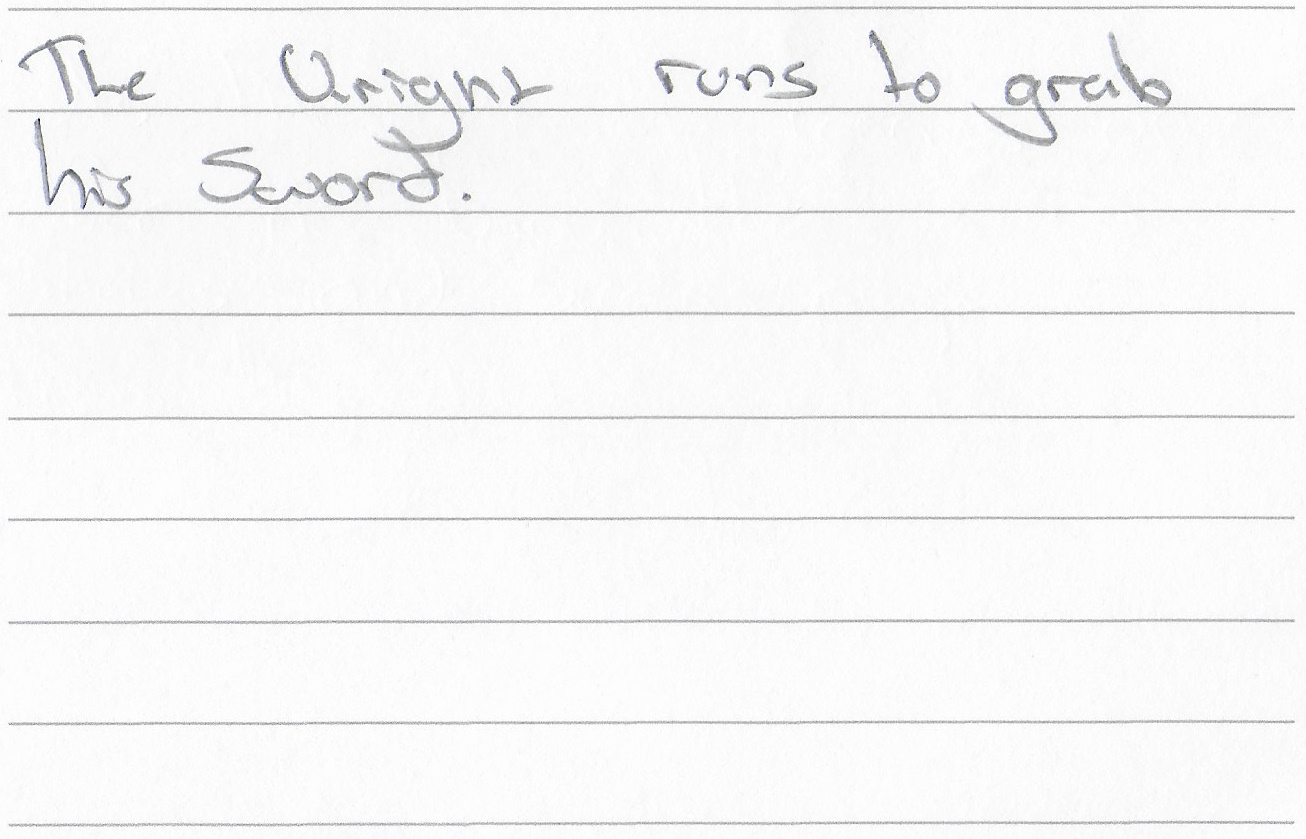 The Unight runs to grab
his Sword.